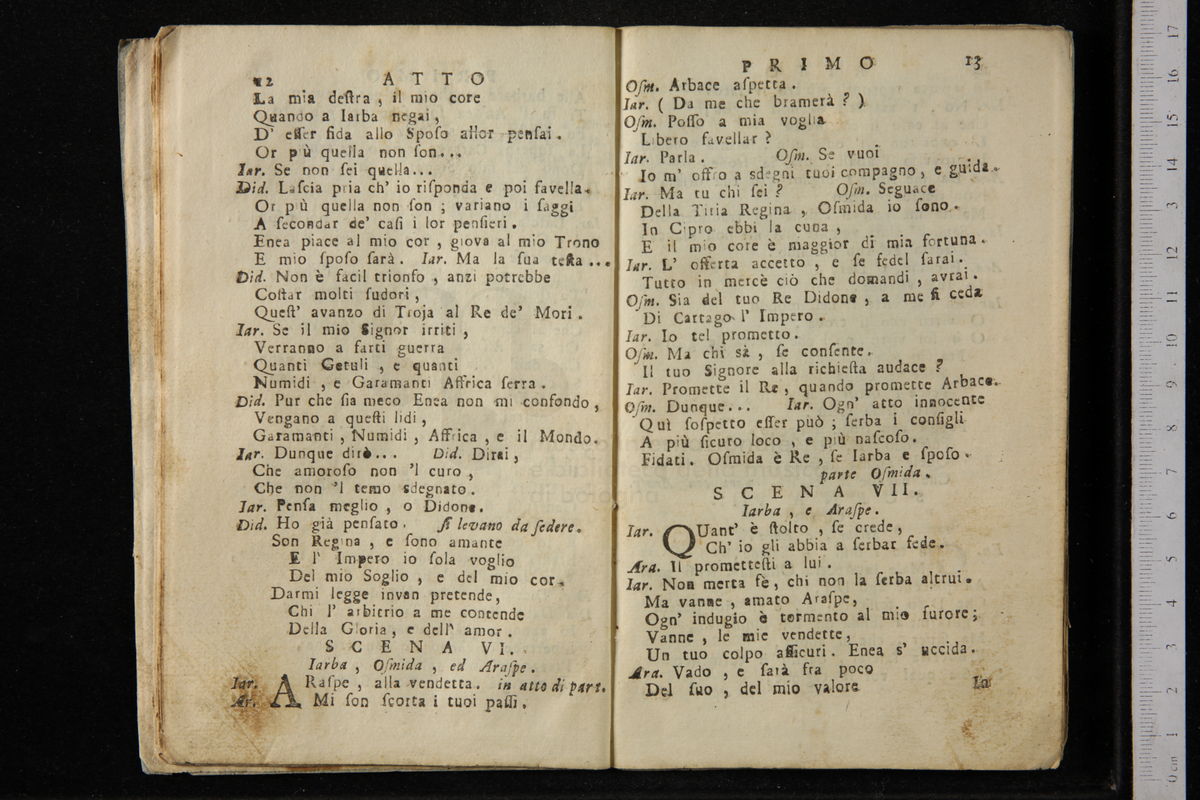 12 ATTO
La mia deſtra , il mio core
Quando a Iarba negai ,
D' eſſer fida allo Spoſo allor penſai .
Or più quella non ſon...
Iar. Se non ſei quella...
Did. Laſcia pria ch' io riſponda e poi favella.
Or più quella non ſon ; variano i ſaggi
A ſecondar de' caſi i lor penſieri .
Enea piace al mio cor , giova al mio Trono
E mio ſpoſo ſarà . Iar. Ma la ſua teſta ...
Did. Non è facil trionfo , anzi potrebbe
Coſtar molti ſudori ,
Queſt' avanzo di Troja al Re de' Mori .
Iar. Se il mio Signor irriti ,
Verranno a farti guerra
Quanti Getuli , e quanti
Numidi , e Garamanti Affrica ſerra .
Did. Pur che ſia meco Enea non mi confondo ,
Vengano a queſti lidi ,
Garamanti , Numidi , Affrica , e il Mondo.
Iar. Dunque dirò... Did. Dirai ,
Che amoroſo non 'l curo ,
Che non 'l temo sdegnato .
Iar. Penſa meglio , o Didone.
Did. Ho già penſato . ſi levano da ſedere.
Son Regina , e ſono amante
E l' Impero io ſola voglio
Del mio Soglio , e del mio cor.
Darmi legge invan pretende,
Chi l' arbitrio a me contende
Della Gloria, e dell' amor .
SCENA VI.
Iarba , Oſmida , ed Araſpe .
Iar. ARaſpe , alla vendetta . in atto di part.
Ar. Mi ſon ſcorta i tuoi paſſi .
PRIMO 13
Oſm. Arbace aſpetta .
Iar. ( Da me che bramerà ? )
Oſm. Poſſo a mia voglia
Libero favellar ?
Iar. Parla . Oſm. Se vuoi
Io m' offro a sdegni tuoi compagno , e guida.
Iar. Ma tu chi ſei ? Oſm. Seguace
Della Tiria Regina , Oſmida io ſono .
In Cipro ebbi la cuna ,
E il mio core è maggior di mia fortuna .
Iar. L' offerta accetto , e ſe fedel ſarai .
Tutto in mercè ciò che domandi , avrai .
Oſm. Sia del tuo Re Didone , a me ſi ceda
Di Cartago l' Impero .
Iar. Io tel prometto .
Oſm. Ma chi sà , ſe conſente .
Il tuo Signore alla richieſta audace ?
Iar. Promette il Re , quando promette Arbace.
Oſm. Dunque... Iar. Ogn' atto innocente
Quì ſoſpetto eſſer può ; ſerba i conſigli
A più ſicuro loco , e più naſcoſo .
Fidati . Oſmida è Re , ſe Iarba e ſpoſo .
parte Oſmida .
SCENA VII.
Iarba , e Araſpe .
Iar. QUant' è ſtolto , ſe crede ,
Ch' io gli abbia a ſerbar fede .
Ara. Il prometteſti a lui .
Iar. Non merta fè , chi non la ſerba altrui .
Ma vanne , amato Araſpe,
Ogn' indugio è tormento al mio furore ;
Vanne , le mie vendette,
Un tuo colpo aſſicuri . Enea s' uccida .
Ara. Vado , e ſarà fra poco
Del ſuo , del mio valore
In
0 cm 1 2 3 4 5 6 7 8 9 10 11 12 13 14 15 16 17